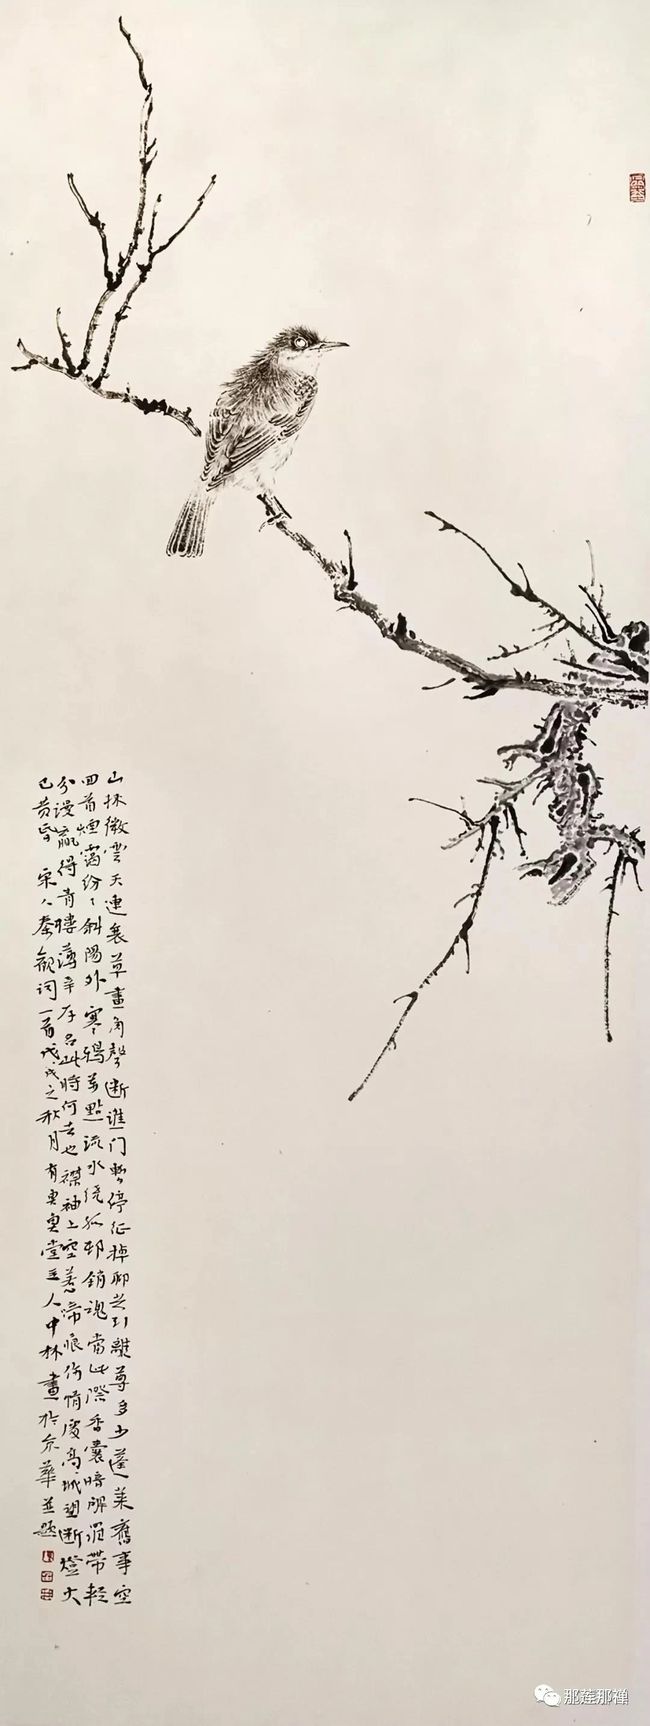 山抹微雲天連衰草畫角聲斷譙门暫停征棹聊共引離尊多少蓬萊舊事空
回首煙靄紛〻斜陽外寒鴉萬點流水绕孤邨銷魂當此際香囊暗解羅帶轻
分漫贏得青樓薄幸存名此時何去也襟袖上空惹啼痕傷情處高城望断燈火
已黄昏 宋人秦觀词一首戊戌之秋月有奥奥堂主人中林畫於京華並题
那莲那禅